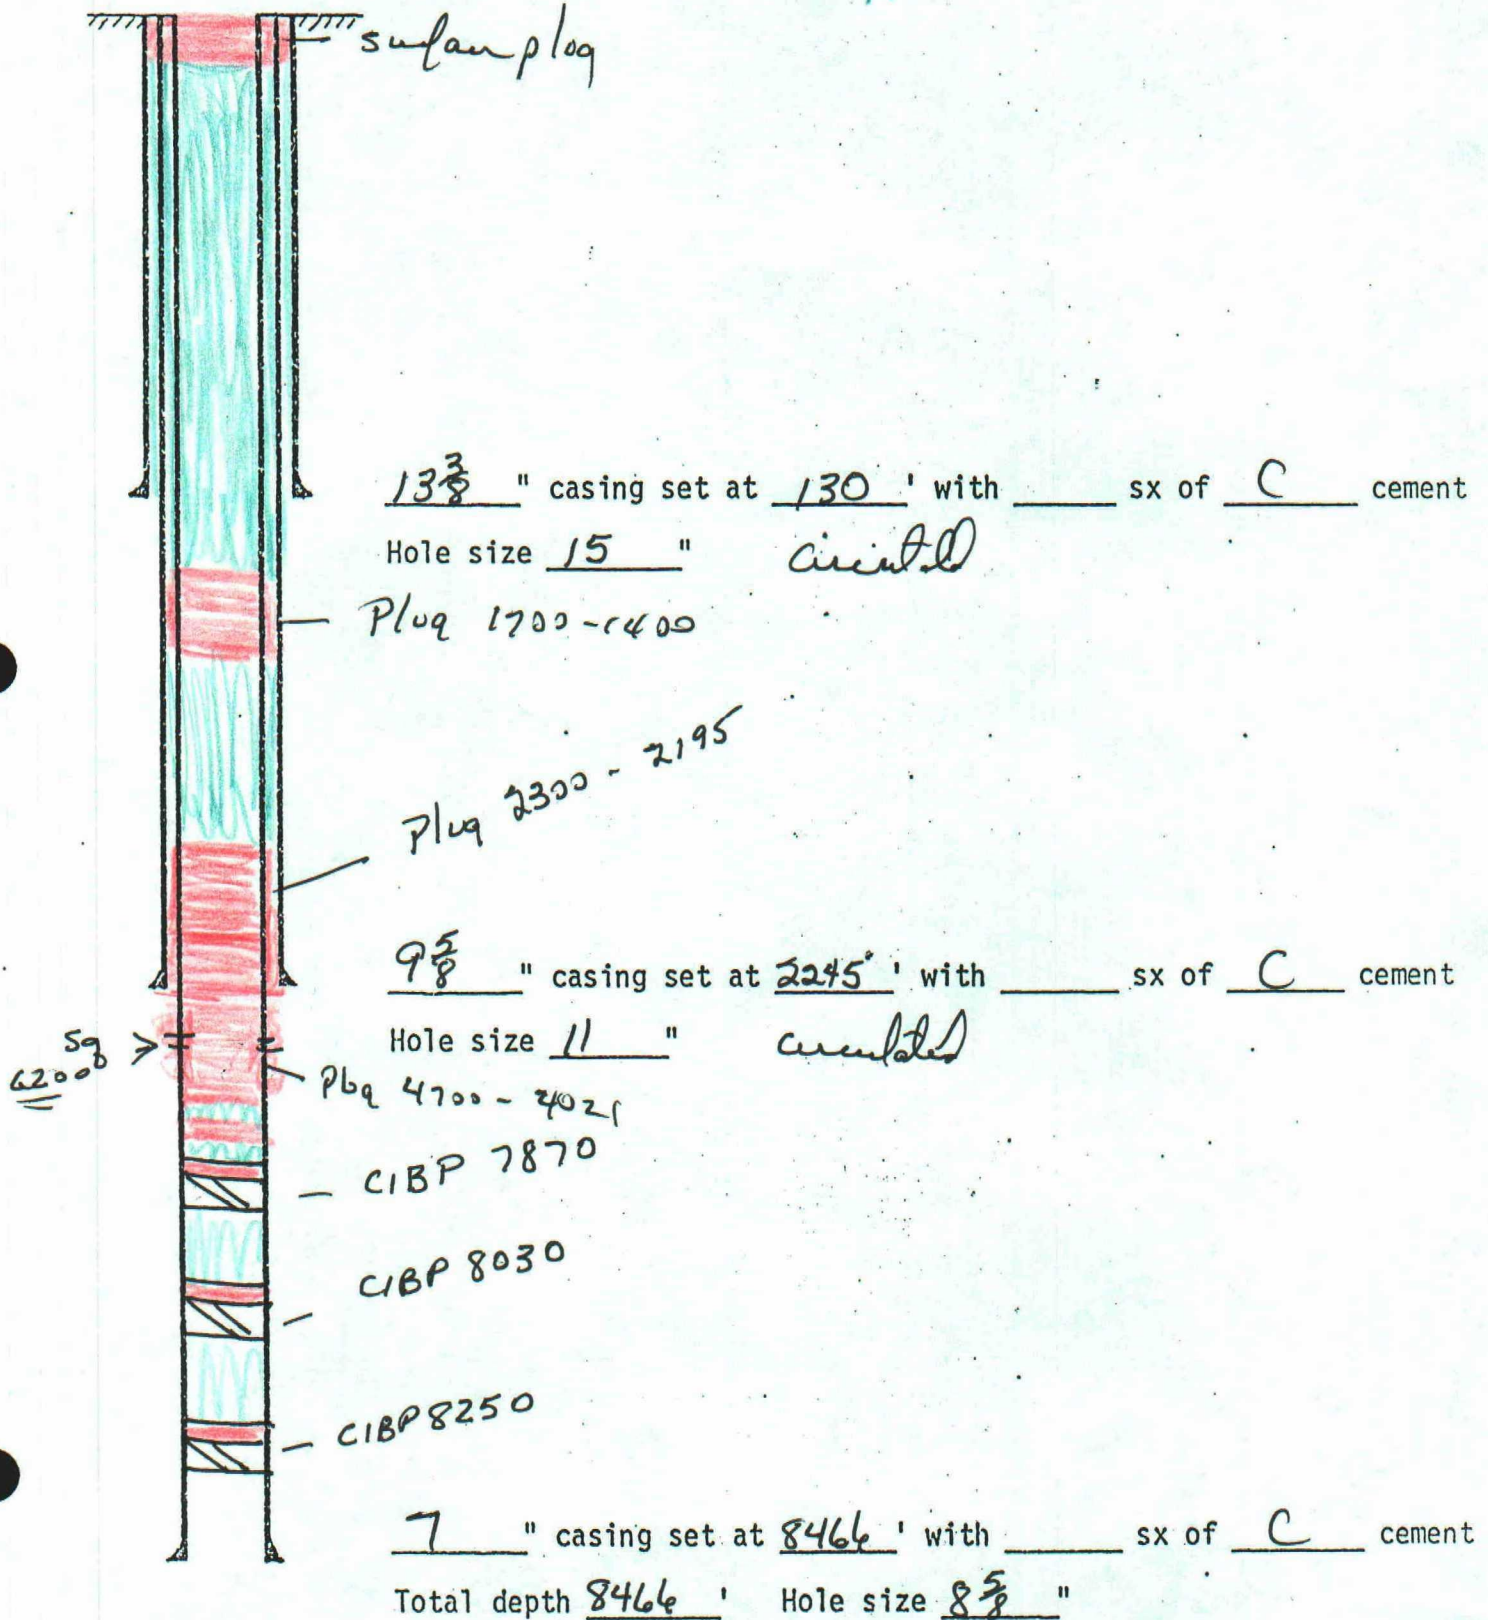 surface plug
13 3/8 " casing set at 130 ' with ____ sx of C cement
Hole size 15 " circulated
Plug 1700-1400
Plug 2300 - 2195
9 5/8 " casing set at 2245 ' with ____ sx of C cement
Hole size 11 " circulated
Sq
Plug 4700 - 4021
CIBP 7870
CIBP 8030
CIBP 8250
7 " casing set at 8466 ' with ____ sx of C cement
Total depth 8466 ' Hole size 8 5/8 "